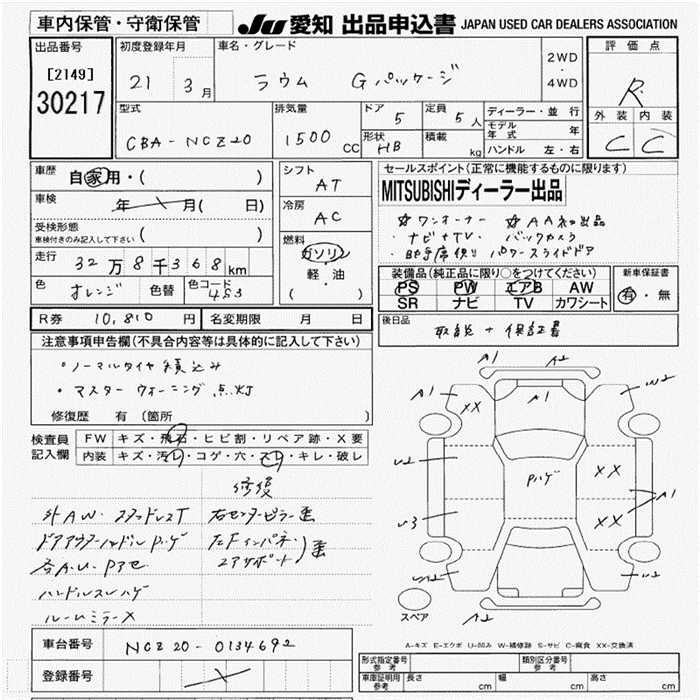 車内保管・守衛保管
JU 愛知 出品申込書 JAPAN USED CAR DEALERS ASSOCIATION
出品番号
[2149]
30217
初度登録年月
21 3月
車名・グレード
ラウム Gパッケージ
2WD
・
4WD
評価点
R
外装 内装
C C
型式
CBA-NCZ20
排気量
1500 CC
ドア 5
形状 HB
定員 5人
積載 kg
ディーラー・並行
モデル年式 年
ハンドル 左・右
車歴
自家用・( )
車検
年 月( 日)
受検形態
車検付きのみ記入して下さい ( )
走行
32万8千368km
色
オレンジ
色替
色コード
4S3
シフト
AT
冷房
AC
燃料
ガソリン
軽・油
( )
セールスポイント(正常に機能するものに限ります)
MITSUBISHIディーラー出品
☆ワンオーナー ☆AA初出品
・ナビ+TV ・バックカメラ
・助手席側 パワースライドドア
装備品(純正品に限り○をつけてください)
PS PW エアB AW
SR ナビ TV カワシート
新車保証書
有・無
R券 10,810円
名変期限 月 日
後日品
取説+保証書
注意事項申告欄(不具合内容等は具体的に記入して下さい)
・ノーマルタイヤ積込み
・マスターウォーニング点灯
修復歴 有 (箇所 )
検査員
記入欄
FW キズ・飛石・ヒビ割・リペア跡・X要
内装 キズ・汚レ・コゲ・穴・スレ・キレ・破レ
修復
外AW スタッドレスT
右センターピラー
ドアアウターハンドル
ハンドルスレハゲ
ルームミラーX
A1 A2
A1 XX A1 W2
U2 Pハゲ XX
A1
U3 XX
A2
スペア
A-キズ E-エクボ U-凹み W-補修跡 S-サビ C-腐食 XX-交換済
車台番号 NCZ20-0134692
登録番号
型式指定番号
参考
類別区分番号
参考
車庫証明用
参考
長さ cm 幅 cm 高さ cm